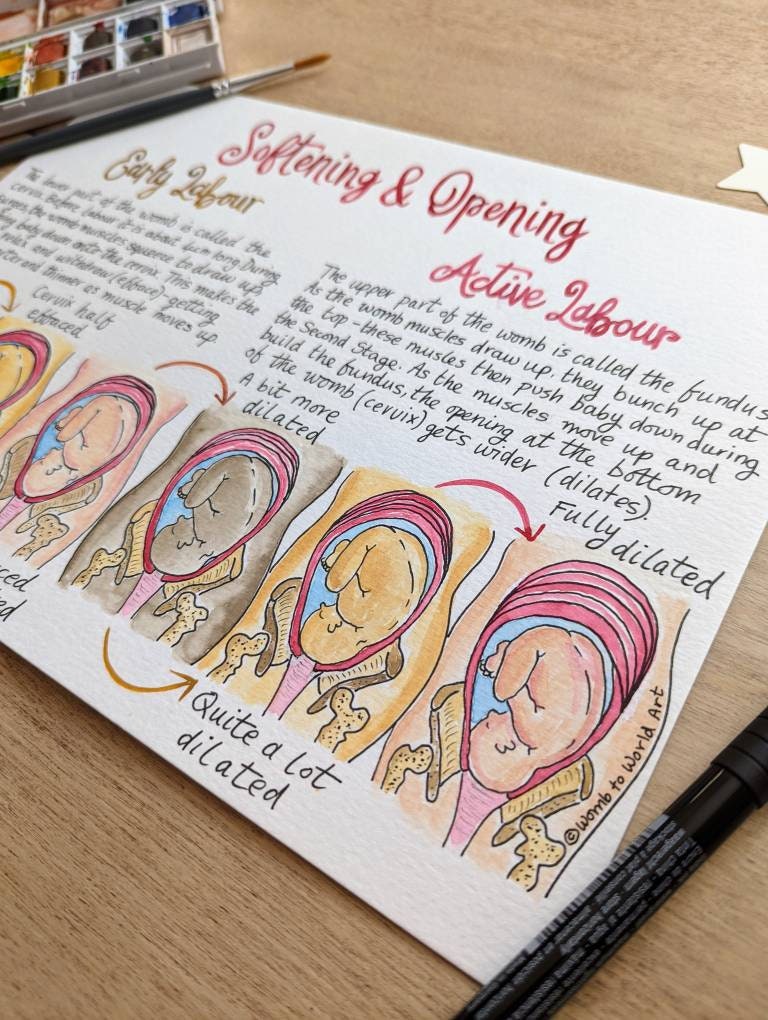 Softening & Opening
Early Labour
The lower part of the womb is called the
cervix. Before labour it is about 4cm long. During
the womb muscles squeeze to draw up
baby down onto the cervix. This makes the
and withdraw (efface) getting
and thinner as muscle moves up.
Cervix half
effaced
Active Labour
The upper part of the womb is called the fundus
As the womb muscles draw up, they bunch up at
the top - these muscles then push baby down during
the Second Stage. As the muscles move up and
build the fundus, the opening at the bottom
of the womb (cervix) gets wider (dilates).
A bit more
dilated
Fully dilated
Quite a lot
dilated
©Womb to World Art